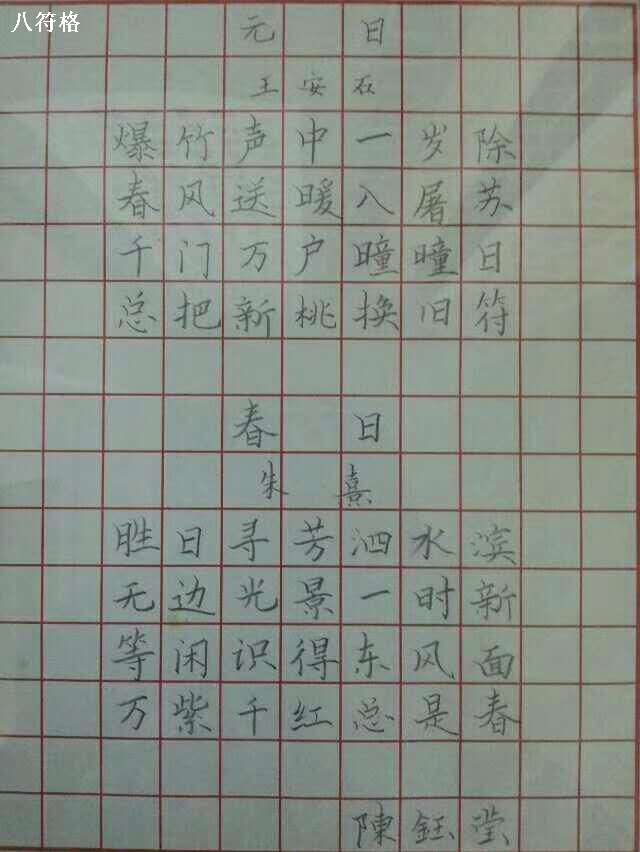 八符格
元日
王安石
爆竹声中一岁除
春风送暖入屠苏
千门万户曈曈日
总把新桃换旧符
春日
朱熹
胜日寻芳泗水滨
无边光景一时新
等闲识得东风面
万紫千红总是春
陳鈺莹